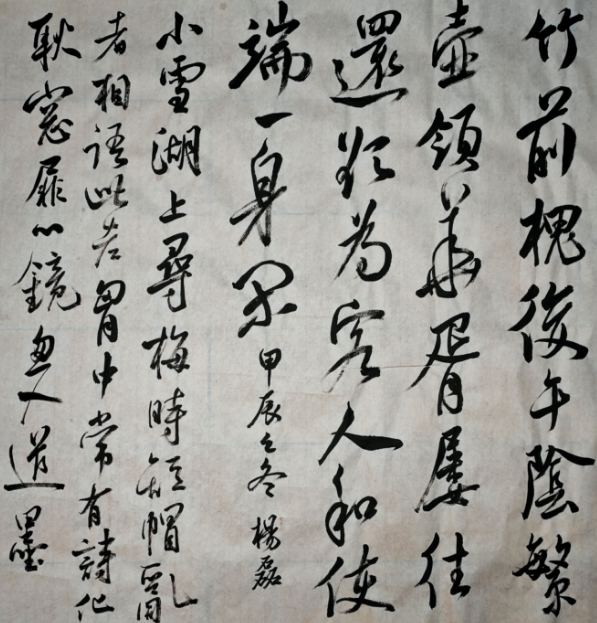 竹前槐後午陰繁
壺領華胥屡往
還為客人和使
端一身閑甲辰之冬楊磊
小雪湖上尋梅時短帽亂
者相語此老胷中常有詩他
耿窓扉心鏡入道墨